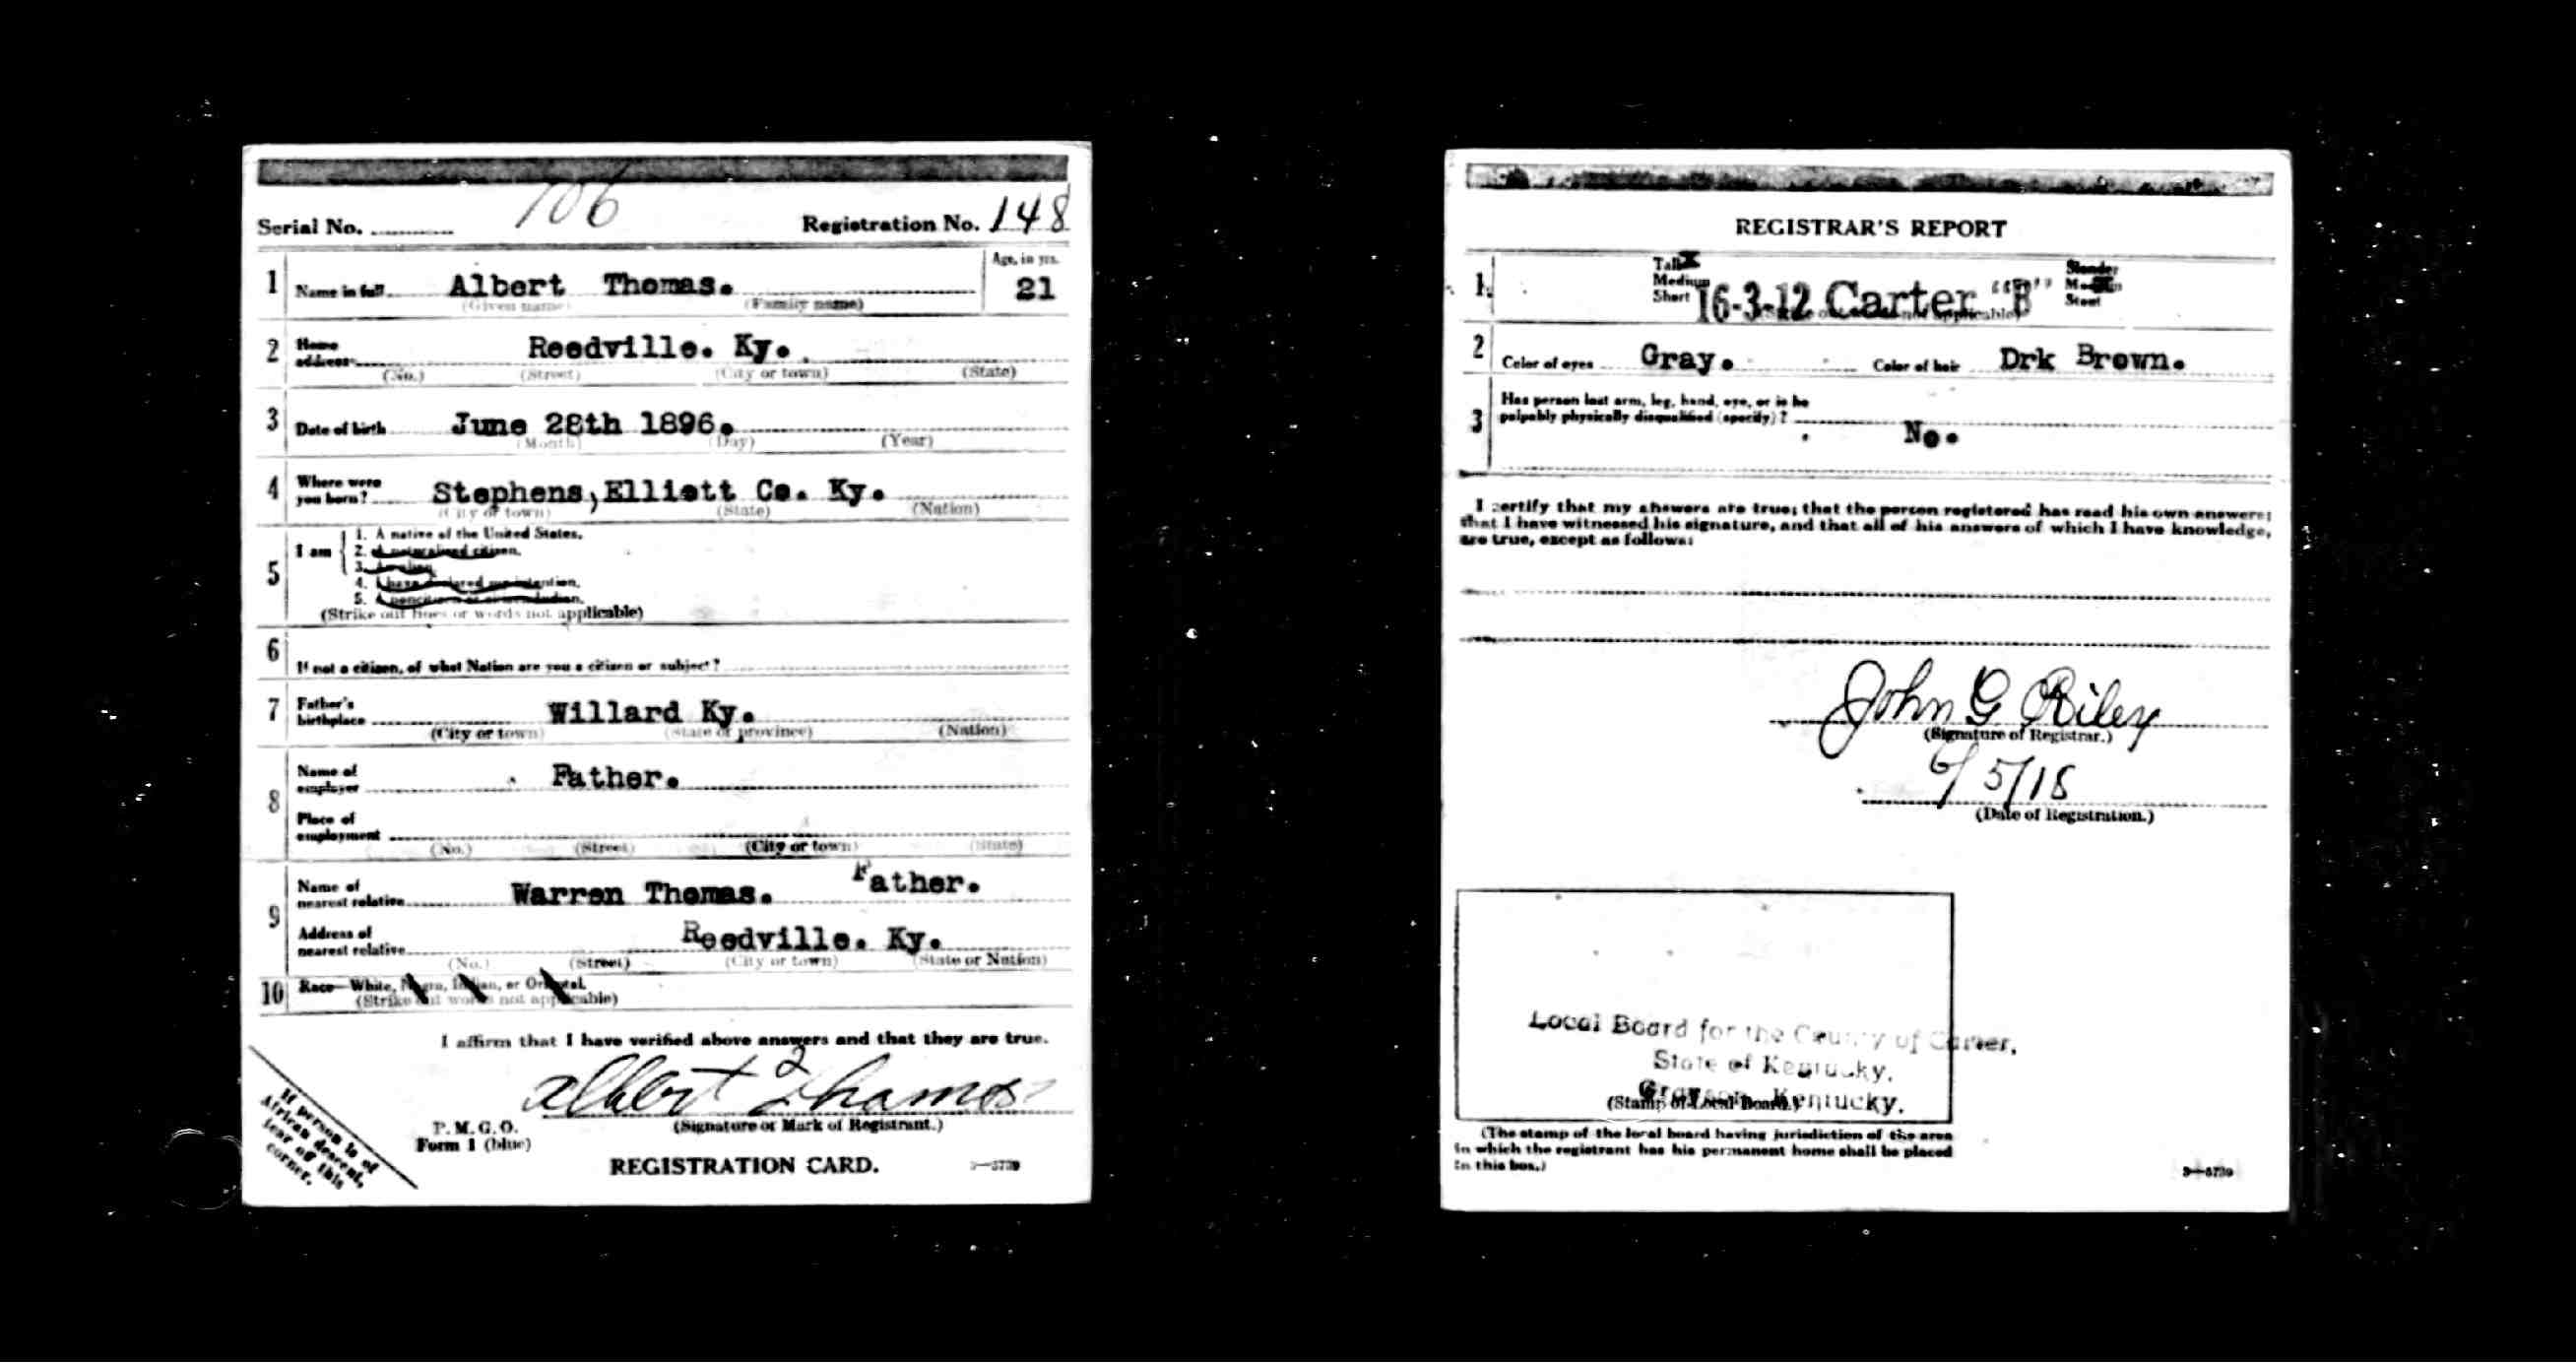 106
Serial No. Registration No. 148
1 Name in full Albert Thomas. Age, in yrs. 21
(Given name) (Family name)
2 Home address Reedville. Ky.
(No.) (Street) (City or town) (State)
3 Date of birth June 28th 1896.
(Month) (Day) (Year)
4 Where were you born? Stephens, Elliott Co. Ky.
(City or town) (State) (Nation)
5 I am
1. A native of the United States.
2. A naturalized citizen.
3. An alien
4. I have declared my intention.
5.
(Strike out lines or words not applicable)
6 If not a citizen, of what Nation are you a citizen or subject?
7 Father's birthplace Willard Ky.
(City or town) (State or province) (Nation)
8 Name of employer Father.
Place of employment
(No.) (Street) (City or town) (State)
9 Name of nearest relative Warren Thomas. Father.
Address of nearest relative Reedville. Ky.
(No.) (Street) (City or town) (State or Nation)
10 Race—White, Negro, Indian, or Oriental.
(Strike out words not applicable)
I affirm that I have verified above answers and that they are true.
Albert Thomas
(Signature or Mark of Registrant.)
P. M. G. O.
Form 1 (blue)
REGISTRATION CARD. 3—5739
If person is of
African descent,
tear off this
corner.
REGISTRAR'S REPORT
1. Tall Slender
Medium Medium
Short Stout
16-3-12 Carter "B"
2 Color of eyes Gray. Color of hair Drk Brown.
3 Has person lost arm, leg, hand, eye, or is he
palpably physically disqualified (specify)? No.
I certify that my answers are true; that the person registered has read his own answers;
that I have witnessed his signature, and that all of his answers of which I have knowledge,
are true, except as follows:
John G Riley
(Signature of Registrar.)
6/5/18
(Date of Registration.)
Local Board for the County of Carter,
State of Kentucky,
Grayson, Kentucky.
(Stamp of Local Board.)
(The stamp of the local board having jurisdiction of the area
in which the registrant has his permanent home shall be placed
in this box.)
3—5739